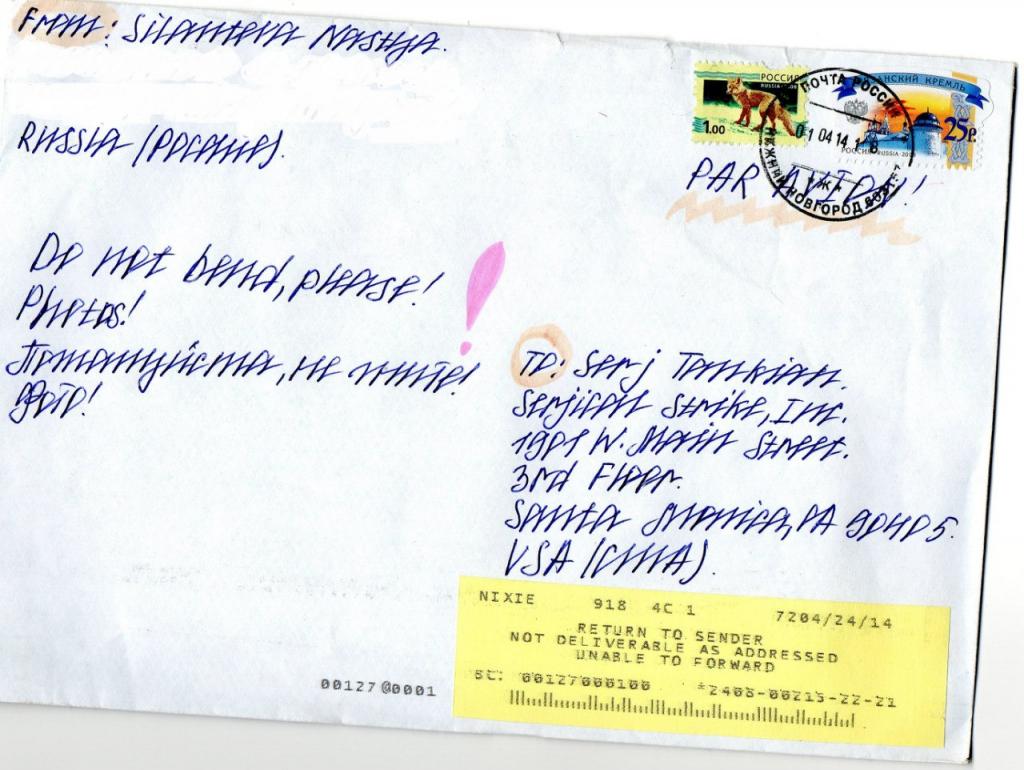 From: Silanteva Nastya.
Russia (Россия).
РОССИЯ
RUSSIA
1.00
КРЕМЛЬ
25р.
ПОЧТА РОССИИ
01 04 14 1
НИЖНИЙ НОВГОРОД
PAR AVION!
Do not bend, please!
Photos!
Пожалуйста, не гните!
Фото!
To: Serj Tankian.
Serjical Strike, Inc.
W. Main Street.
3rd Floor.
Santa Monica, CA 90405.
USA (США).
NIXIE 918 4C 1 7204/24/14
RETURN TO SENDER
NOT DELIVERABLE AS ADDRESSED
UNABLE TO FORWARD
BC: 00127000100 *2468-00215-22-21
00127@0001